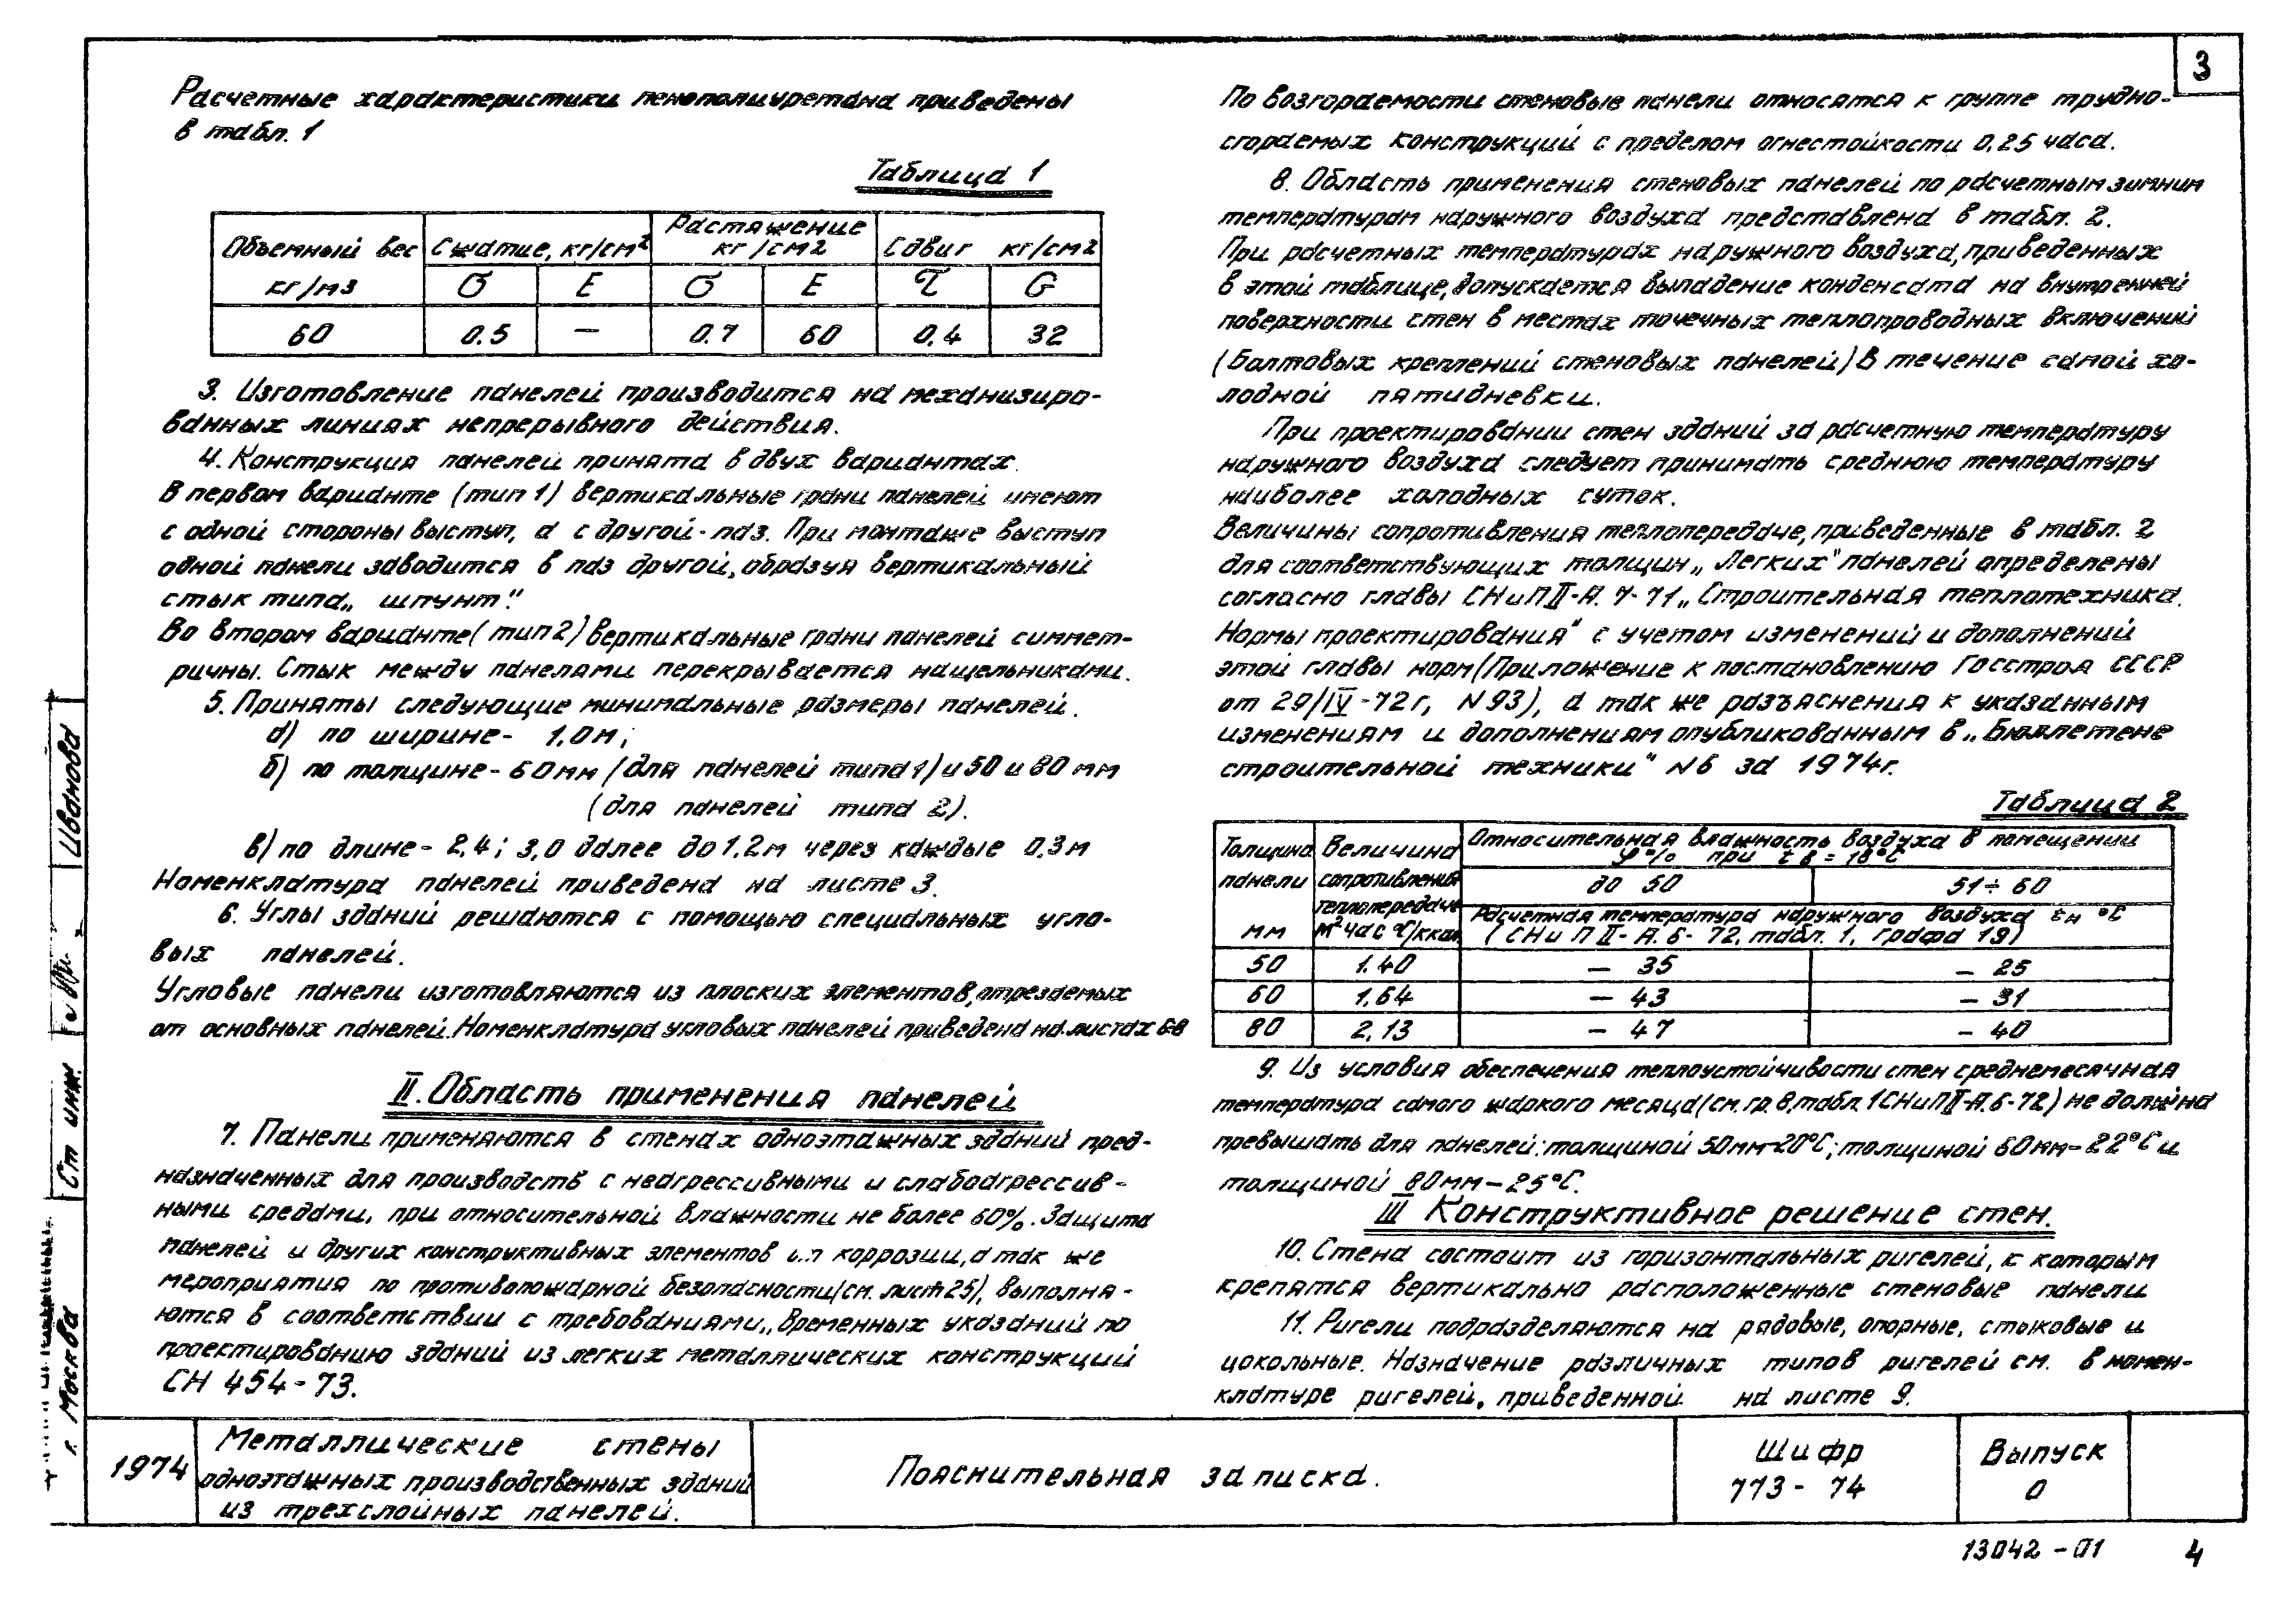 3
Расчетные характеристики пенополиуретана приведены
в табл. 1
Таблица 1
Объемный вес кг/м3 | Сжатие, кг/см2 | Растяжение кг/см2 | Сдвиг кг/см2
σ | E | σ | E | τ | G
60 | 0.5 | — | 0.7 | 60 | 0.4 | 32
3. Изготовление панелей производится на механизиро-
ванных линиях непрерывного действия.
4. Конструкция панелей принята в двух вариантах.
В первом варианте (тип 1) вертикальные грани панелей имеют
с одной стороны выступ, а с другой - паз. При монтаже выступ
одной панели заводится в паз другой, образуя вертикальный
стык типа „шпунт".
Во втором варианте (тип 2) вертикальные грани панелей симмет-
ричны. Стык между панелями перекрывается нащельниками.
5. Приняты следующие минимальные размеры панелей.
а) по ширине - 1,0м;
б) по толщине - 60мм (для панелей типа 1) и 50 и 80 мм
(для панелей типа 2).
в) по длине - 2,4; 3,0 далее до 1.2м через каждые 0.3м
Номенклатура панелей приведена на листе 3.
6. Углы зданий решаются с помощью специальных угло-
вых панелей.
Угловые панели изготовляются из плоских элементов, отрезаемых
от основных панелей. Номенклатура угловых панелей приведена на листах 6-8
II. Область применения панелей
7. Панели применяются в стенах одноэтажных зданий пред-
назначенных для производств с неагрессивными и слабоагрессив-
ными средами, при относительной влажности не более 60%. Защита
панелей и других конструктивных элементов от коррозии, а так же
мероприятия по противопожарной безопасности (см. лист 25), выполня-
ются в соответствии с требованиями „Временных указаний по
проектированию зданий из легких металлических конструкций
СН 454-73.
По возгораемости стеновые панели относятся к группе трудно-
сгораемых конструкций с пределом огнестойкости 0,25 часа.
8. Область применения стеновых панелей по расчетным зимним
температурам наружного воздуха представлена в табл. 2.
При расчетных температурах наружного воздуха, приведенных
в этой таблице, допускается выпадение конденсата на внутренней
поверхности стен в местах точечных теплопроводных включений
(болтовых креплений стеновых панелей) в течение самой хо-
лодной пятидневки.
При проектировании стен зданий за расчетную температуру
наружного воздуха следует принимать среднюю температуру
наиболее холодных суток.
Величины сопротивления теплопередаче, приведенные в табл. 2
для соответствующих толщин „Легких" панелей определены
согласно главы СНиП II-А. 7-71 „Строительная теплотехника.
Нормы проектирования" с учетом изменений и дополнений
этой главы норм (Приложение к постановлению Госстроя СССР
от 29/IV-72г, N 93), а так же разъяснения к указанным
изменениям и дополнениям опубликованным в „Бюллетене
строительной техники" N6 за 1974г.
Таблица 2
Толщина панели мм | Величина сопротивления теплопередаче м2 час °С/ккал | Относительная влажность воздуха в помещении φ% при tв = 18°С
до 50 | 51÷60
Расчетная температура наружного воздуха tн °С
(СНиП II-А.6-72, табл. 1, графа 19)
50 | 1.40 | — 35 | — 25
60 | 1.64 | — 43 | — 31
80 | 2,13 | — 47 | — 40
9. Из условия обеспечения теплоустойчивости стен среднемесячная
температура самого жаркого месяца (см. гр. 8, табл. 1 СНиП II-А.6-72) не должна
превышать для панелей: толщиной 50мм-20°С; толщиной 60мм-22°С и
толщиной 80мм-25°С.
III Конструктивное решение стен.
10. Стена состоит из горизонтальных ригелей, к которым
крепятся вертикально расположенные стеновые панели
11. Ригели подразделяются на рядовые, опорные, стыковые и
цокольные. Назначение различных типов ригелей см. в номен-
клатуре ригелей, приведенной на листе 9.
Иванова
Ст инж.
г. Москва
1974
Металлические стены
одноэтажных производственных зданий
из трехслойных панелей.
Пояснительная записка.
Шифр
773-74
Выпуск
0
13042-01
4